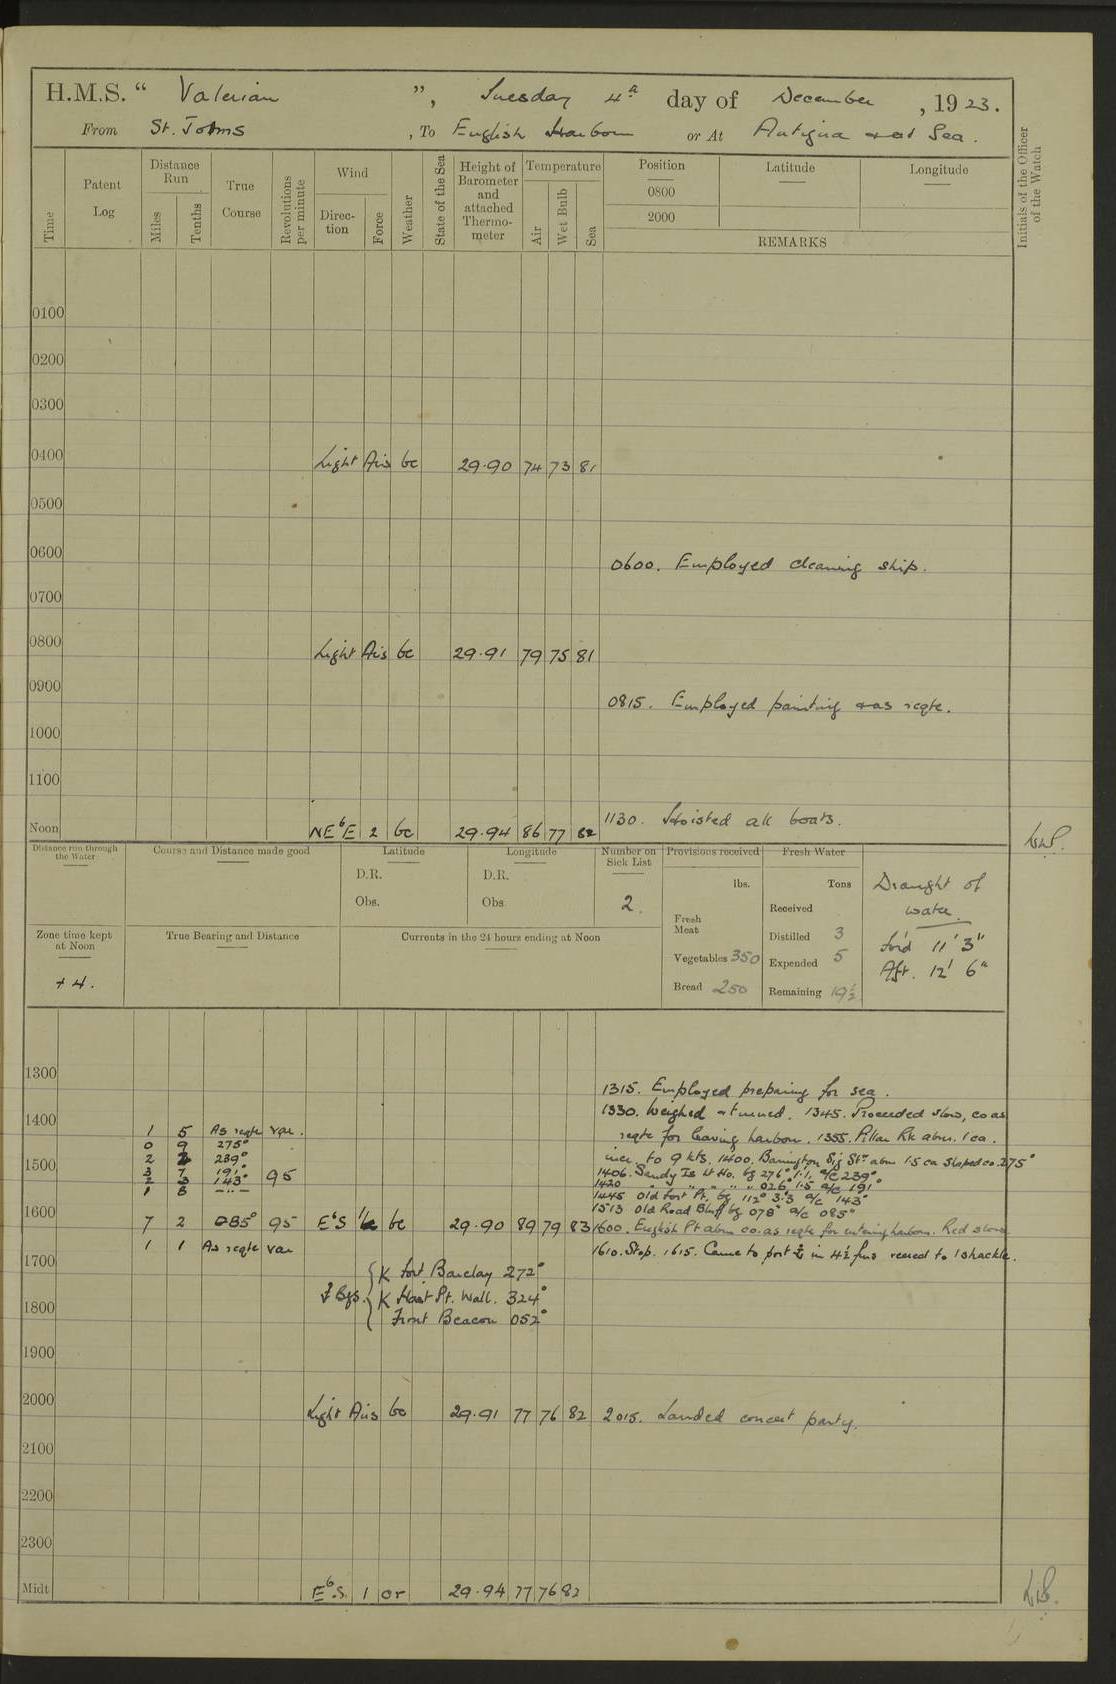 H.M.S. “ Valerian ”, Tuesday 4th day of December , 1923.
From St. Johns , To English Harbour or At Antigua & at Sea.
Time
Patent Log
Distance Run
Miles
Tenths
True Course
Revolutions per minute
Wind
Direc-tion
Force
Weather
State of the Sea
Height of Barometer and attached Thermo-meter
Temperature
Air
Wet Bulb
Sea
Position
0800
2000
Latitude
Longitude
REMARKS
Initials of the Officer of the Watch
0100
0200
0300
0400 Light Airs bc 29.90 74 73 81
0500
0600 0600. Employed cleaning ship.
0700
0800 Light Airs bc 29.91 79 75 81
0900 0815. Employed painting & as reqte.
1000
1100
Noon NEbE 2 bc 29.94 86 77 82 1130. Hoisted all boats.
Distance run through the Water
Course and Distance made good
Latitude
D.R.
Obs.
Longitude
D.R.
Obs
Number on Sick List
2.
Provisions received
lbs.
Fresh Meat
Vegetables 350
Bread 250
Fresh Water
Tons
Received
Distilled 3
Expended 5
Remaining 19½
Draught of
water.
For'd 11' 3"
Aft. 12' 6"
Zone time kept at Noon
+4.
True Bearing and Distance
Currents in the 24 hours ending at Noon
1300 1315. Employed preparing for sea.
1400 1330. Weighed & turned. 1345. Proceeded slow, co as
1 5 As reqte var. reqte for leaving harbour. 1355. Pillar Rk abm. 1 ca.
0 9 275°
2 2 239° incr. to 9 kts. 1400. Barrington Sig Stn abm 1.5 ca Shaped co. 275°
1500 3 7 191° 1406. Sandy Is Lt Ho. bg 276° 1.1. a/c 239°
2 3 143° 95 1420 " " " " 026° 1.5 a/c 191°
1 8 -··- 1445 Old Fort Pt. bg 112° 3.3 a/c 143°
1513 Old Road Bluff bg 078° a/c 085°
1600 7 2 085° 95 EbS bc 29.90 89 79 83 1600. English Pt abm co. as reqte for entering harbour. Red slow
1 1 As reqte var 1610. Stop. 1615. Came to port ⚓ in 4½ fms veered to 1 shackle.
1700 K Fort Barclay 272°
⚓ Bgs. K Hart Pt. Wall. 324°
1800 Front Beacon 052°
1900
2000 Light Airs bc 29.91 77 76 82 2015. Landed concert party.
2100
2200
2300
Midt EbS. 1 or 29.94 77 76 82